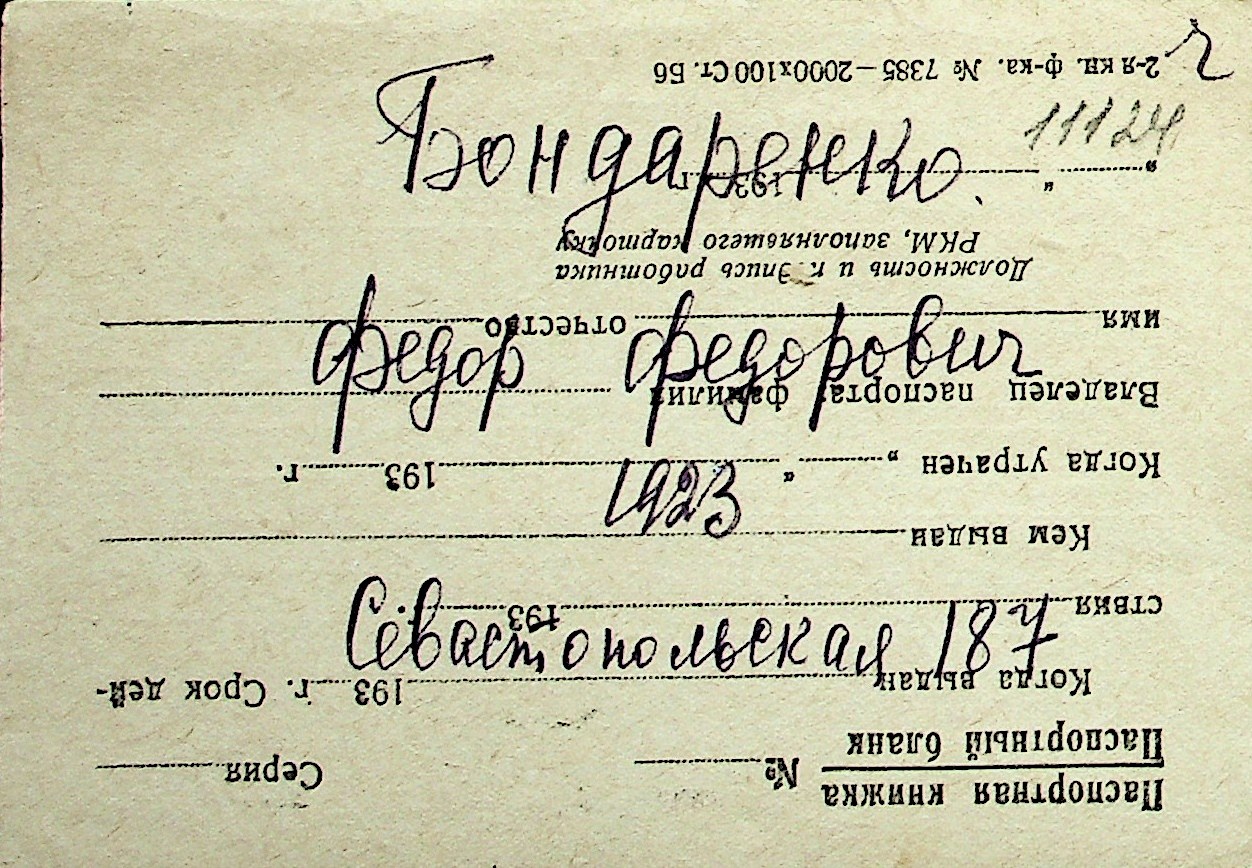 ч
11124
Бондаренко.
Федор Федорович
1923
Севастопольская 187
Паспортная книжка
Паспортный бланк
№ Серия
Когда выдан 193 г. Срок дей-
ствия 193
Кем выдан
Когда утрачен „ “ 193 г.
Владелец паспорта: фамилия
имя отчество
Должность и подпись работника
РКМ, заполнявшего карточку
„ “ 193 г.
2-я кн. ф-ка. № 7385—2000х100 Ст. Б6